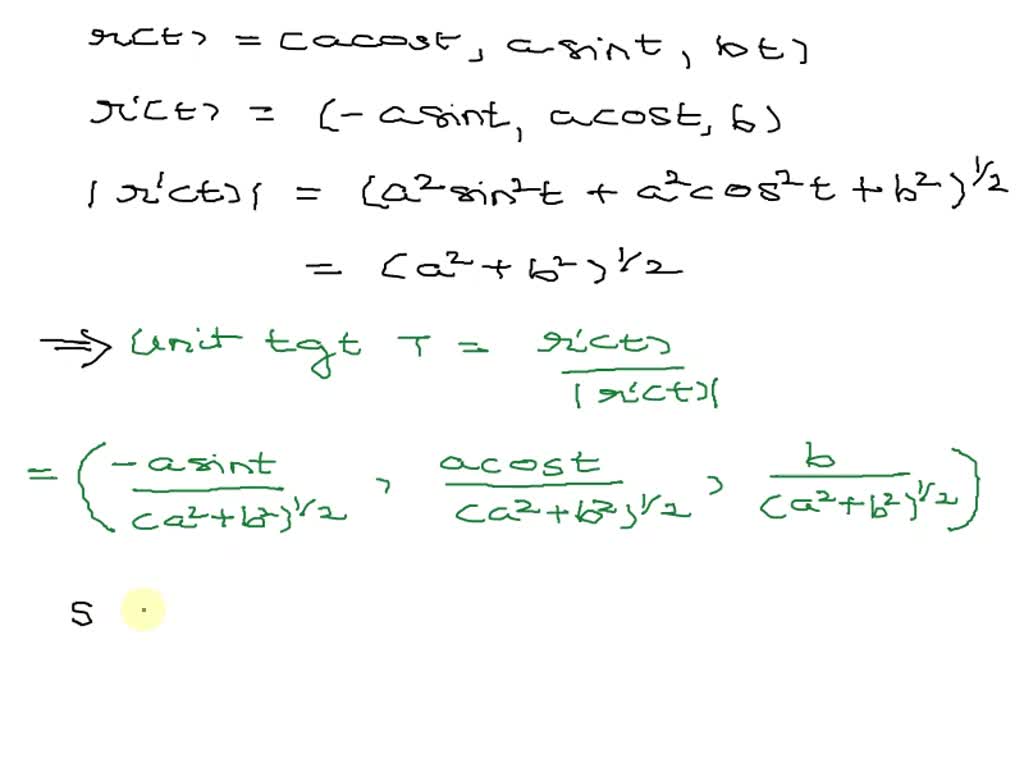 r(t) = (a cos t, a sin t, bt)
r'(t) = (-a sin t, a cos t, b)
|r'(t)| = (a² sin² t + a² cos² t + b²)^1/2
= (a² + b²)^1/2
⇒ Unit tgt T = r'(t) / |r'(t)|
= (-a sin t / (a² + b²)^1/2 , a cos t / (a² + b²)^1/2 , b / (a² + b²)^1/2)
S